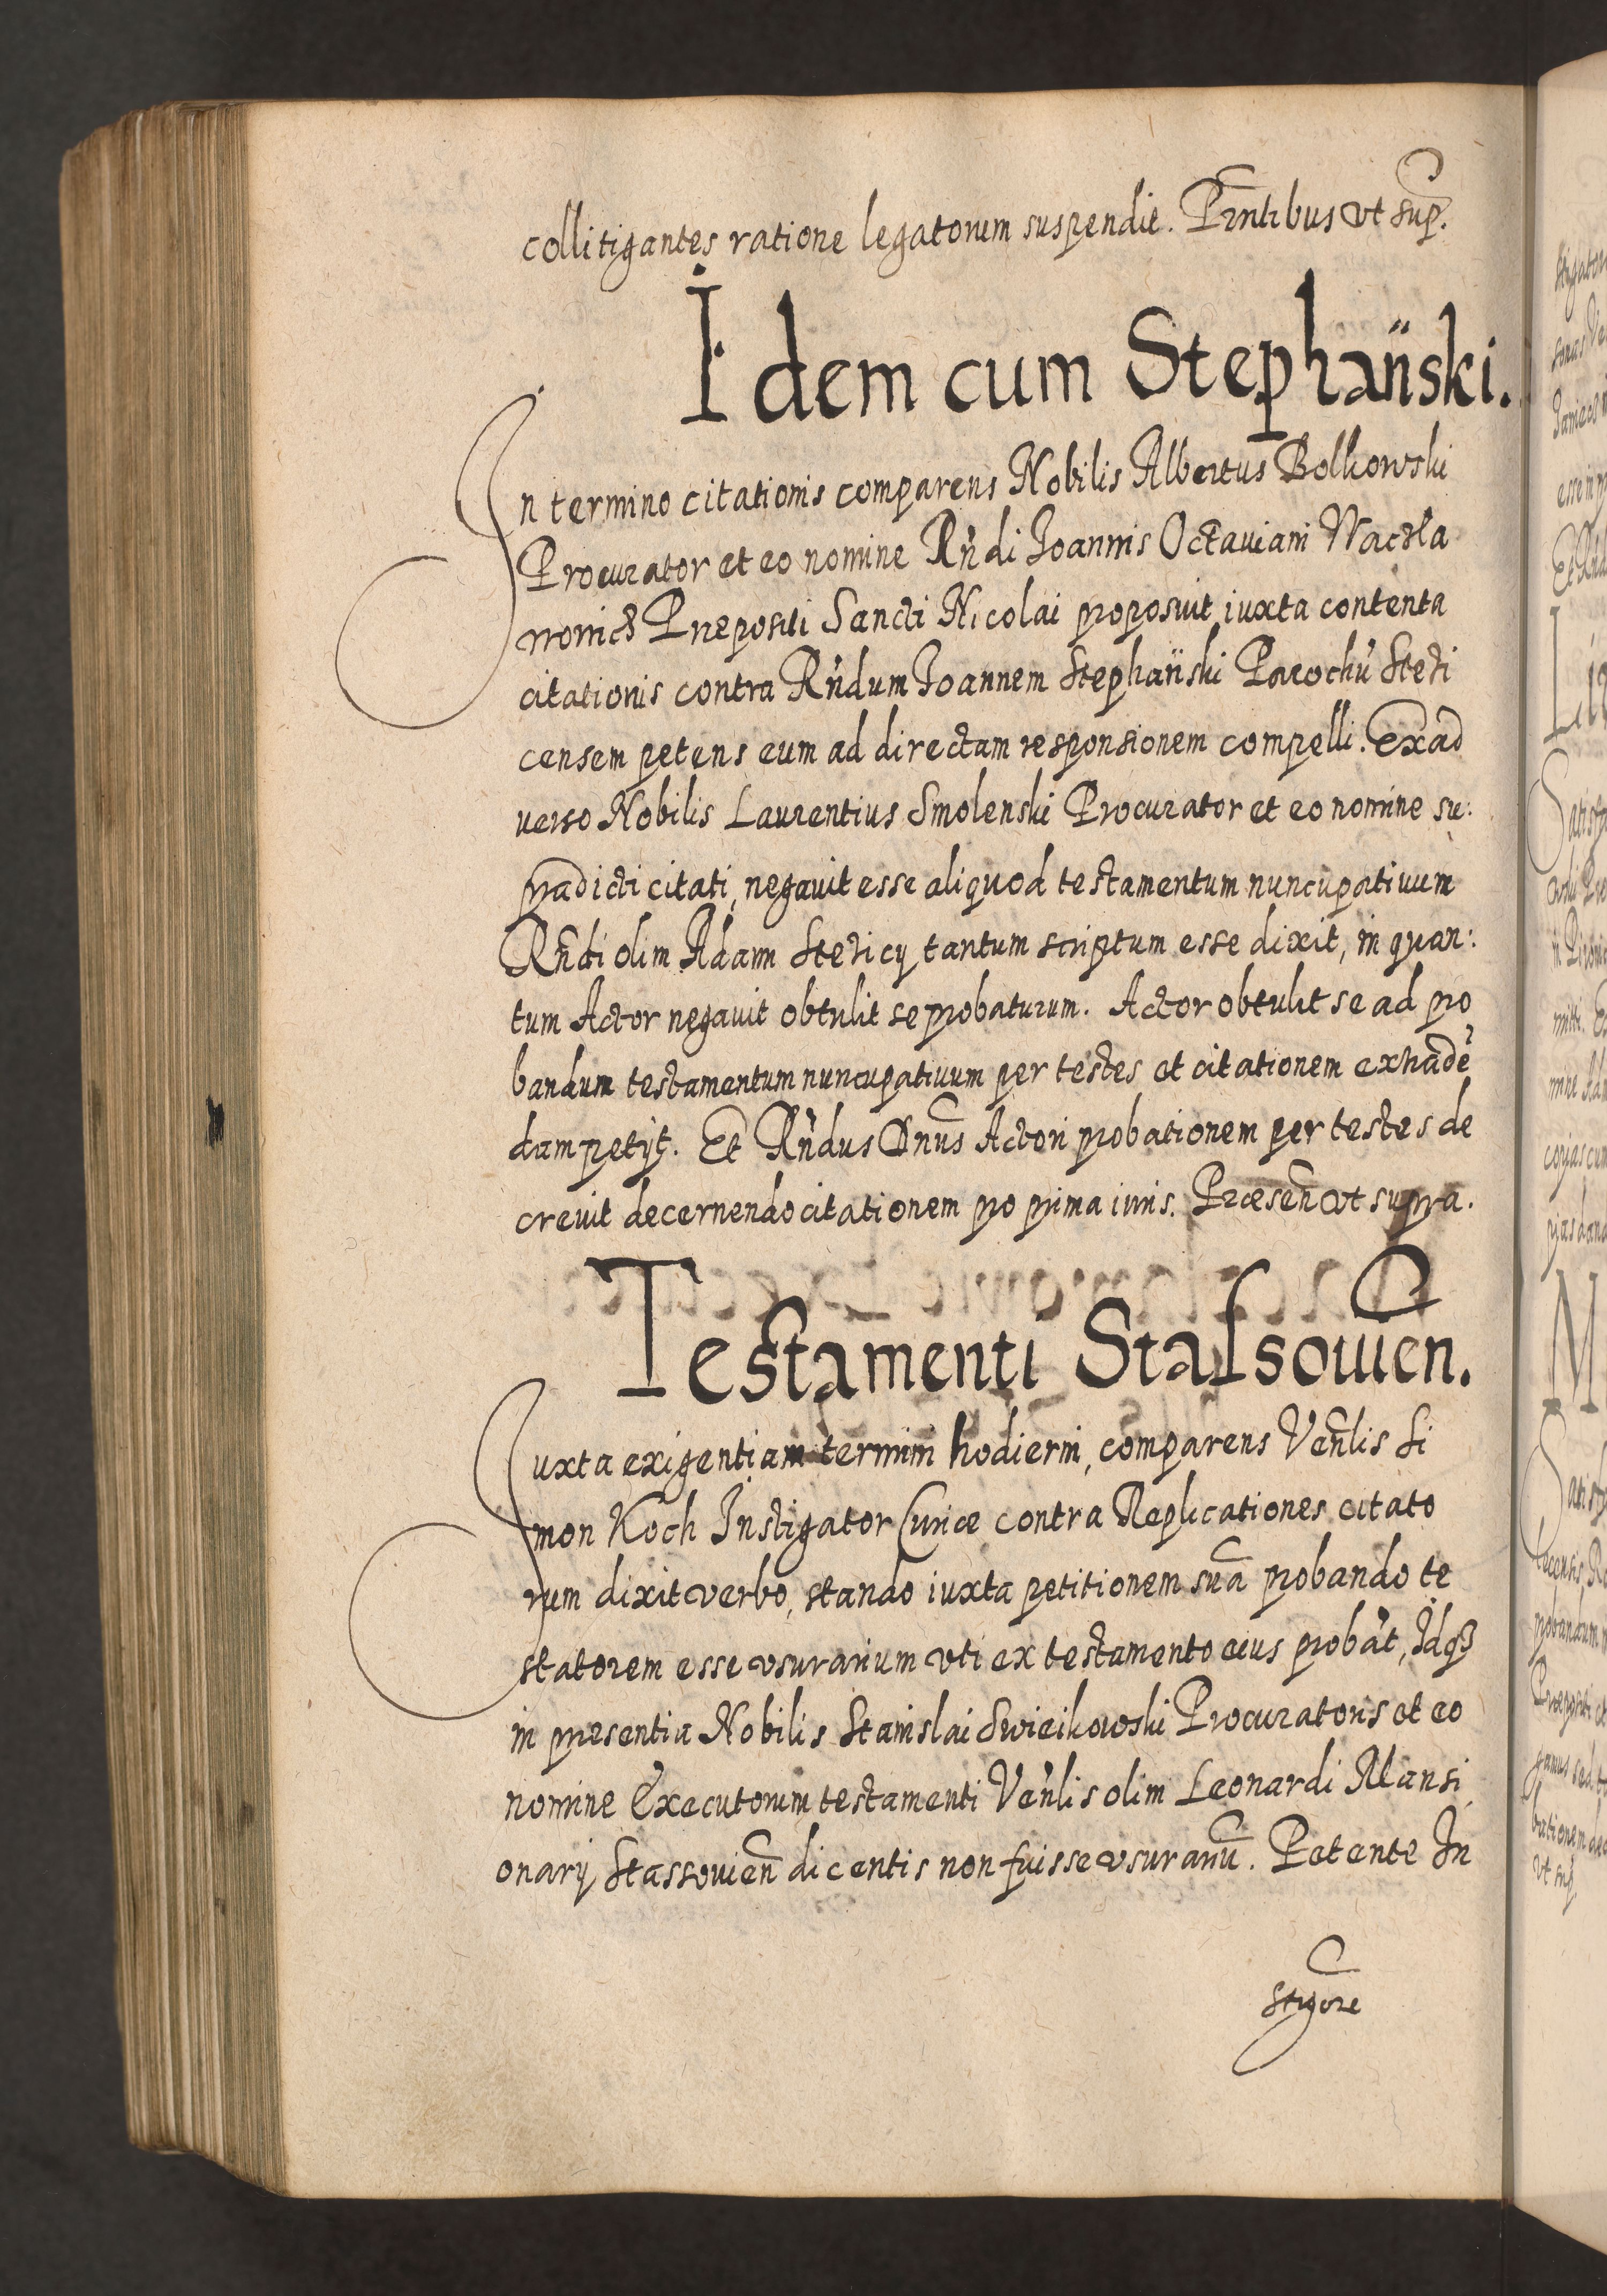 collitigantes ratione legatorum suspendit. Pñtibus vt sup.
Idem cum Stephański.
In termino citationis comparens Nobilis Albertus Bolkowski
Procurator et eo nomine Rñdi Joannis Octauiani Waczla
Præpositi Sancti Nicolai proposuit iuxta contenta
citationis contra Rñdum Joannem Stephański Parochũ Stezi
censem petens eum ad directam responsionem compelli. Ex ad
uerso Nobilis Laurentius Smolenski Procurator et eo nomine su:
pradicti citati, negauit esse aliquod testamentum nuncupatiuum
Rñdi olim Adam Stezicy tantum scriptum esse dixit, in quan:
tum Actor negauit obtulit se probaturum. Actor obtulit se ad pro
bandum testamentum nuncupatiuum per testes et citationem extradẽ
dam petijt. Et Rñdus Dñus Actori probationem per testes de
creuit decernendo citationem pro prima iuris. Præseñ vt supra.
Testamenti Stassouien.
Juxta exigentiam termini hodierni, comparens Veñlis Si
mon Koch Instigator Curiæ contra Replicationes citato
rum dixit verbo, stando iuxta petitionem suã probando te
statorem esse vsurarium vti ex testamento eius probãt, Idqꝫ
in præsentia Nobilis Stanislai Swieikowski Procuratoris et eo
nomine Executorum testamenti Veñlis olim Leonardi Mansi
onarij Stassouieñ dicentis non fuisse vsurariũ. Petente In
stigore